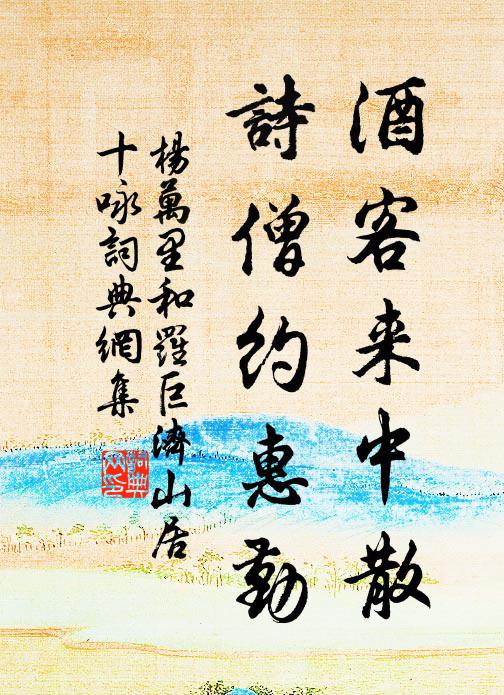 酒客来中散
詩僧約惠勤
楊萬里和羅巨濟山居
十咏詞典網集